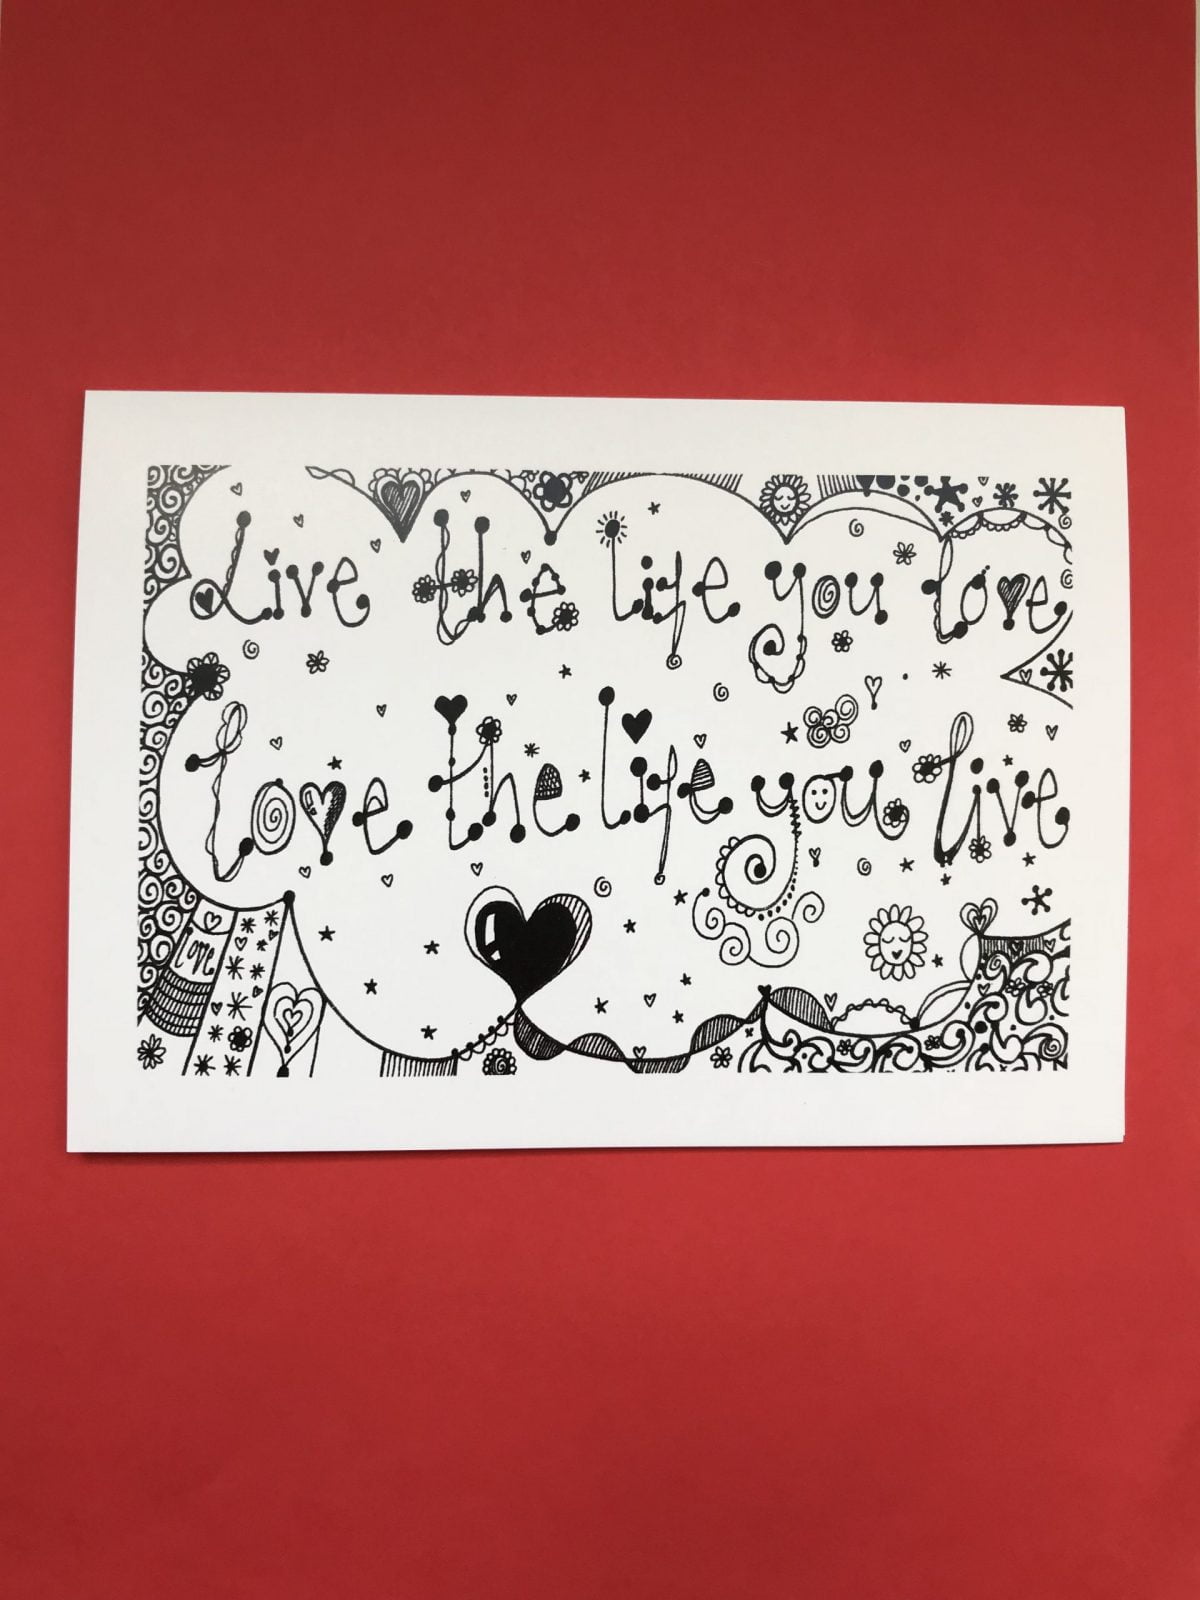 Live the life you love
Love the life you live
Love